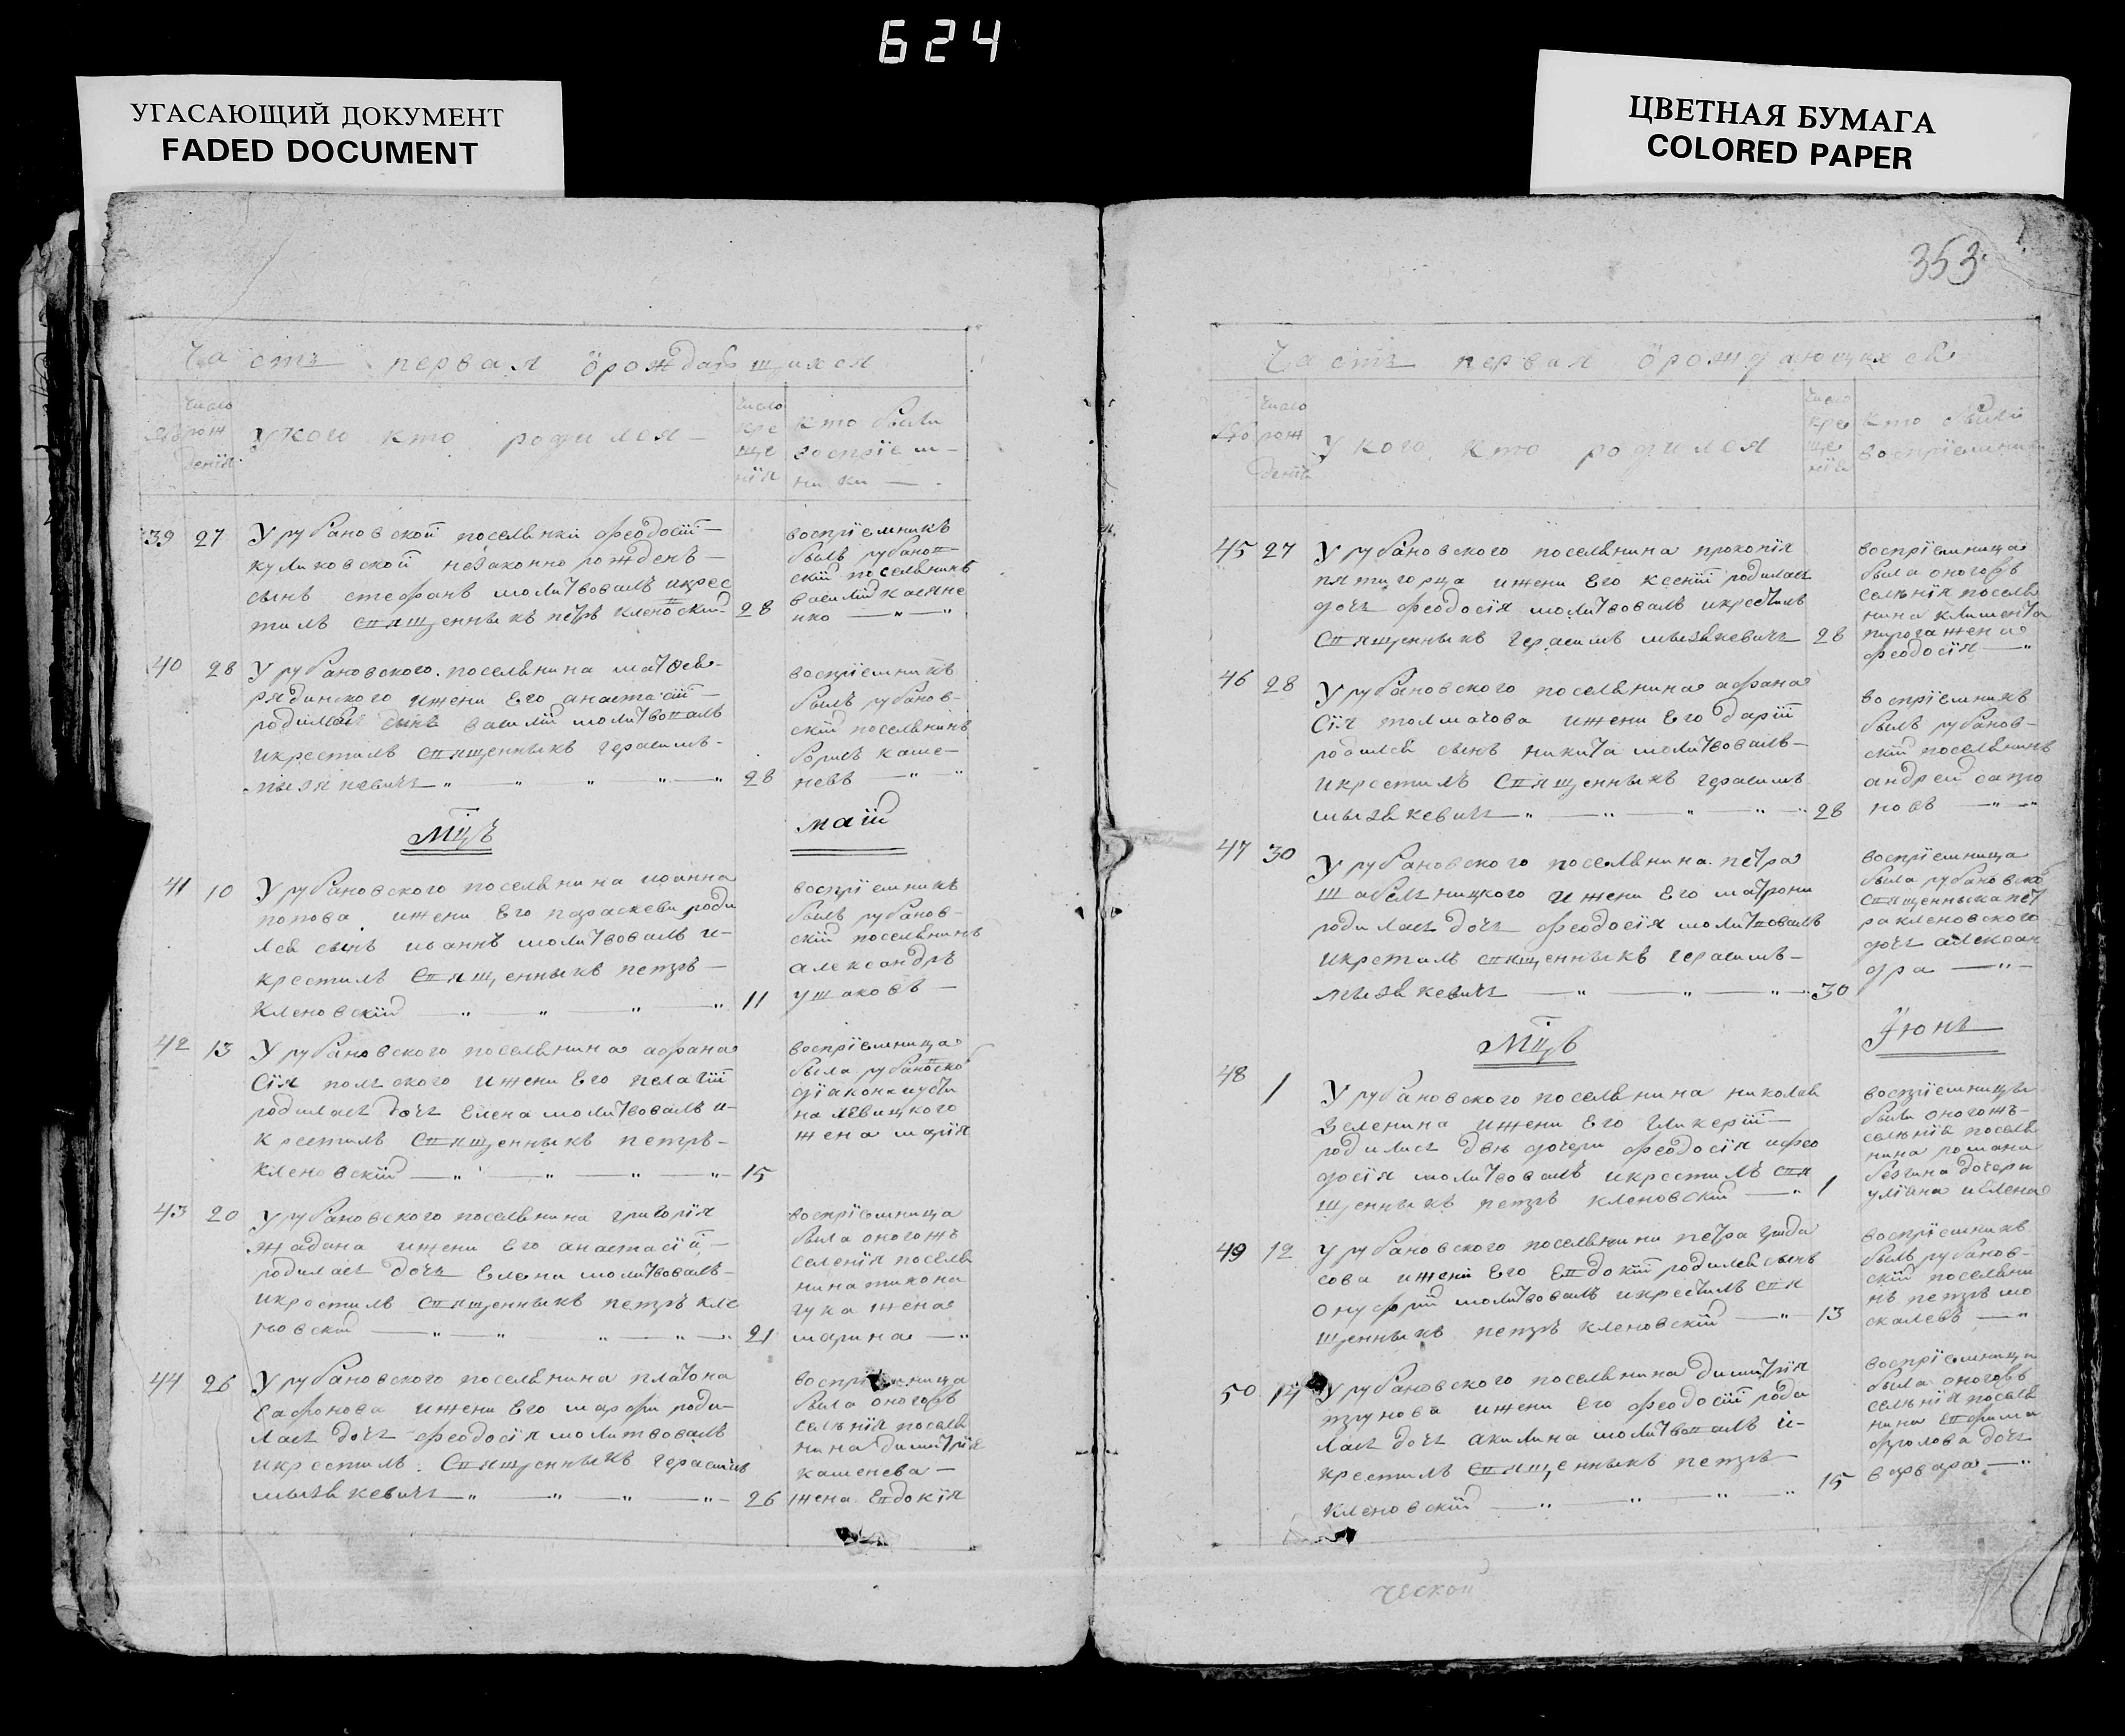 624
УГАСАЮЩИЙ ДОКУМЕНТ
FADED DOCUMENT
ЦВЕТНАЯ БУМАГА
COLORED PAPER
Часть первая о рождающихся
Число рождения
У кого кто родился
Число крещенія
кто были
воспріем-
ники
39 27 У рубановской поселянки феодосіи
куликовской незаконно рожденъ
сынъ стефанъ молитвовалъ икрес
тилъ священникъ петръ кленовскій 28
воспріемникъ
былъ рубанов
скій поселянинъ
василій касяне
нко
40 28 У рубановского поселянина матвея
рядинского ижени его анастасіи
родился сынъ василій молитвовалъ
икрестилъ священникъ герасимъ
мызякевичъ 28
воспріемникъ
былъ рубанов-
скій поселянинъ
борисъ каме-
невъ
мцъ маій
41 10 У рубановского поселянина иоанна
попова ижени его параскеви роди
лся сынъ иоаннъ молитвовалъ и-
крестилъ священникъ петръ
кленовскій 11
воспріемникъ
былъ рубанов-
скій поселянинъ
александръ
ушаковъ
42 13 У рубановского поселянина афана
сія полского ижени его пелагіи
родилась дочь елена молитвовалъ и-
крестилъ священникъ петръ
кленовскій 15
воспріемница
была рубановско
діакона
на левицкого
жена марія
43 20 У рубановского поселянина григорія
жадана ижени его анастасіи
родилась дочь елена молитвовалъ
икрестилъ священникъ петръ кле
новскій 21
воспріемница
была оногожъ
селенія поселя
нина тихона
гука жена
марина
44 26 У рубановского поселянина платона
сафонова ижени его марфи роди-
лась дочь феодосія молитвовалъ
икрестилъ священникъ герасимъ
мызякевичъ 26
воспріемница
была оногожъ
селенія поселя
нина димитрія
каменева
жена евдокія
353
Часть первая о рождающихся
Число рожденія
У кого кто родился
Число крещенія
кто были
воспріемники
45 27 У рубановского поселянина прокопія
пятигорца ижени его ксеніи родилась
дочь феодосія молитвовалъ икрестилъ
священникъ герасимъ мызякевичъ 28
воспріемница
была оногожъ
селенія поселя
нина климента
пирога жена
феодосія
46 28 У рубановского поселянина афана
сія толмачова ижени его даріи
родился сынъ никита молитвовалъ
икрестилъ священникъ герасимъ
мызякевичъ 28
воспріемникъ
былъ рубанов-
скій поселянинъ
андрей сапро
новъ
47 30 У рубановского поселянина петра
шабельницкого ижени его матрони
родилась дочь феодосія молитвовалъ
икрстилъ священникъ герасимъ
мызякевичъ 30
воспріемница
была рубановско
священника пет
ра кленовского
дочь алексан
дра
мцъ Іюнь
48 1 У рубановского поселянина николая
зеленина ижени его гликеріи
родились две дочери феодосія ифео
досія молитвовалъ икрестилъ свя
щенникъ петръ кленовскій 1
воспріемницы
были оногожъ
селенія поселя
нина романа
дочери
уліяна иелена
49 12 У рубановского поселянина петра
сова ижени его евдокіи родился сынъ
онуфрій молитвовалъ икрестилъ свя
щенникъ петръ кленовскій 13
воспріемникъ
былъ рубанов-
скій поселяни
нъ петръ мо
скалевъ
50 14 У рубановского поселянина димитрія
трунова ижени его феодосіи роди
лась дочь акилина молитвовалъ и-
крестилъ священникъ петръ
кленовскій 15
воспріемница
была оногожъ
селенія поселя
нина ефима
фролова дочь
варвара
ческой